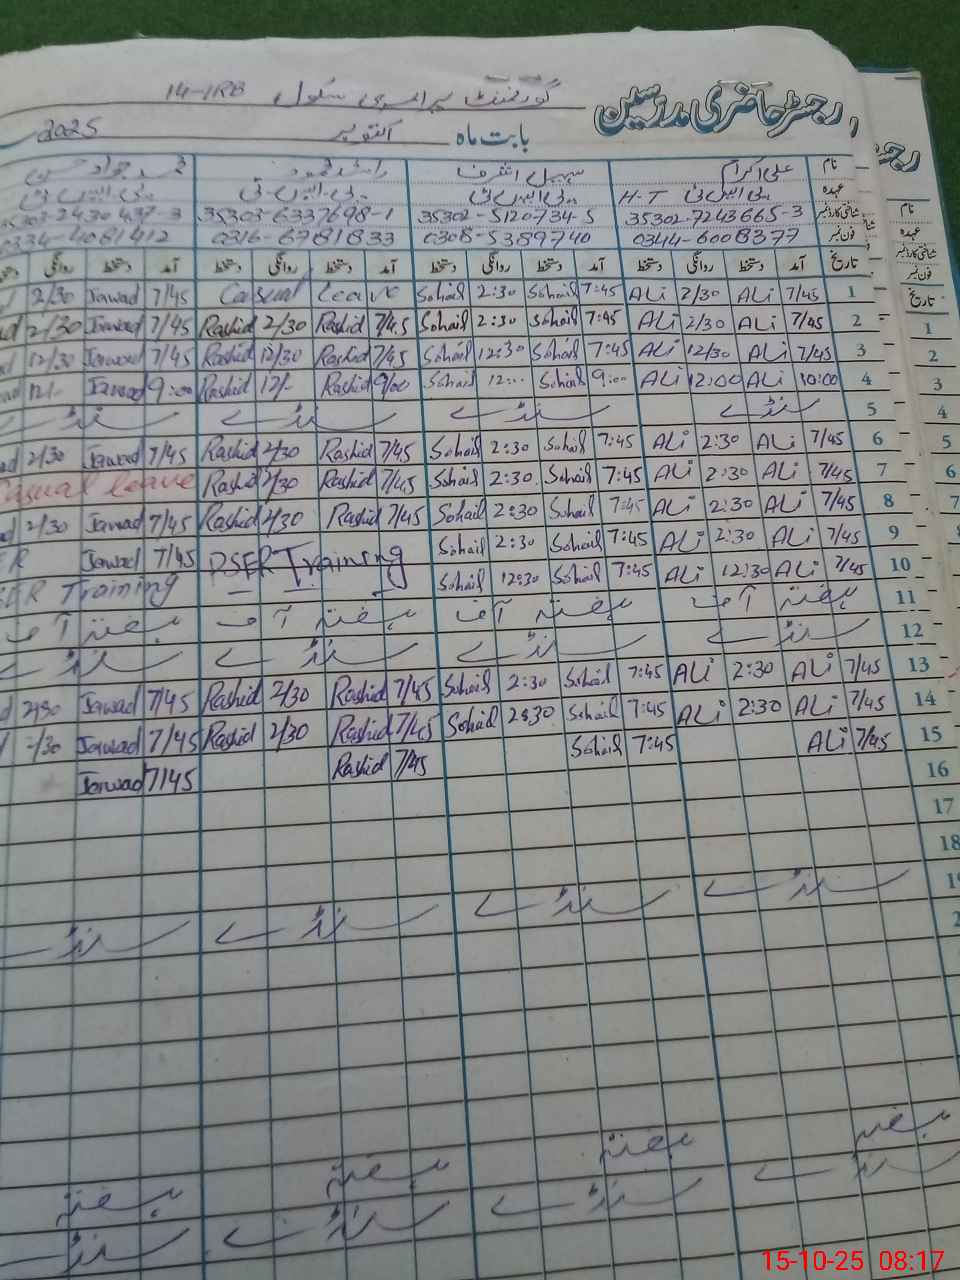 رجسٹر حاضری مدرسین گورنمنٹ پرائمری سکول 14-1RB
بابت ماہ اکتوبر 2025
نام علی اکرام سہیل اشرف راشد محمود محمد جواد
عہدہ پی ایس ٹی H-T پی ایس ٹی پی ایس ٹی پی ایس ٹی
شناختی کارڈ نمبر 35302-7243665-3 35302-5120734-5 35303-6337698-1 2430437-3
فون نمبر 0344-6008377 0308-5389740 0316-6781833 0336-4081412
تاریخ آمد دستخط روانگی دستخط آمد دستخط روانگی دستخط آمد دستخط روانگی دستخط آمد دستخط روانگی
1 7/45 ALi 2/30 ALi 7:45 Sohail 2:30 Sohail Casual Leave 7/45 Jawad 2/30
2 7/45 ALi 2/30 ALi 7:45 Sohail 2:30 Sohail 7/45 Rashid 2/30 Rashid 7/45 Jawad 2/30
3 7/45 ALi 12/30 ALi 7:45 Sohail 12:30 Sohail 7/45 Rashid 12/30 Rashid 7/45 Jawad 12/30
4 10:00 ALi 12:00 ALi 9:00 Sohail 12:00 Sohail 9/00 Rashid 12/- Rashid 9:00 Jawad 12/-
5 سنڈے سنڈے سنڈے سنڈے
6 7/45 ALi 2:30 ALi 7:45 Sohail 2:30 Sohail 7/45 Rashid 2/30 Rashid 7/45 Jawad 2/30
7 7/45 ALi 2:30 ALi 7:45 Sohail 2:30 Sohail 7/45 Rashid 2/30 Rashid Casual leave
8 7/45 ALi 2:30 ALi 7:45 Sohail 2:30 Sohail 7/45 Rashid 2/30 Rashid 7/45 Jawad 2/30
9 7/45 ALi 2:30 ALi 7:45 Sohail 2:30 Sohail PSER Training 7/45 Jawad
10 7/45 ALi 12:30 ALi 7:45 Sohail 12:30 Sohail — — — SER Training
11 ہفتہ آف ہفتہ آف ہفتہ آف ہفتہ آف
12 سنڈے سنڈے سنڈے سنڈے
13 7/45 ALi 2:30 ALi 7:45 Sohail 2:30 Sohail 7/45 Rashid 2/30 Rashid 7/45 Jawad 2/30
14 7/45 ALi 2:30 ALi 7:45 Sohail 2:30 Sohail 7/45 Rashid 2/30 Rashid 7/45 Jawad 2/30
15 7/45 ALi 7:45 Sohail 7/45 Rashid 7/45 Jawad
16
17
18
19 سنڈے سنڈے سنڈے سنڈے
ہفتہ ہفتہ ہفتہ ہفتہ
سنڈے سنڈے سنڈے سنڈے
نام
عہدہ
شناختی کارڈ نمبر
فون نمبر
تاریخ
1
2
3
4
5
6
7
15-10-25 08:17